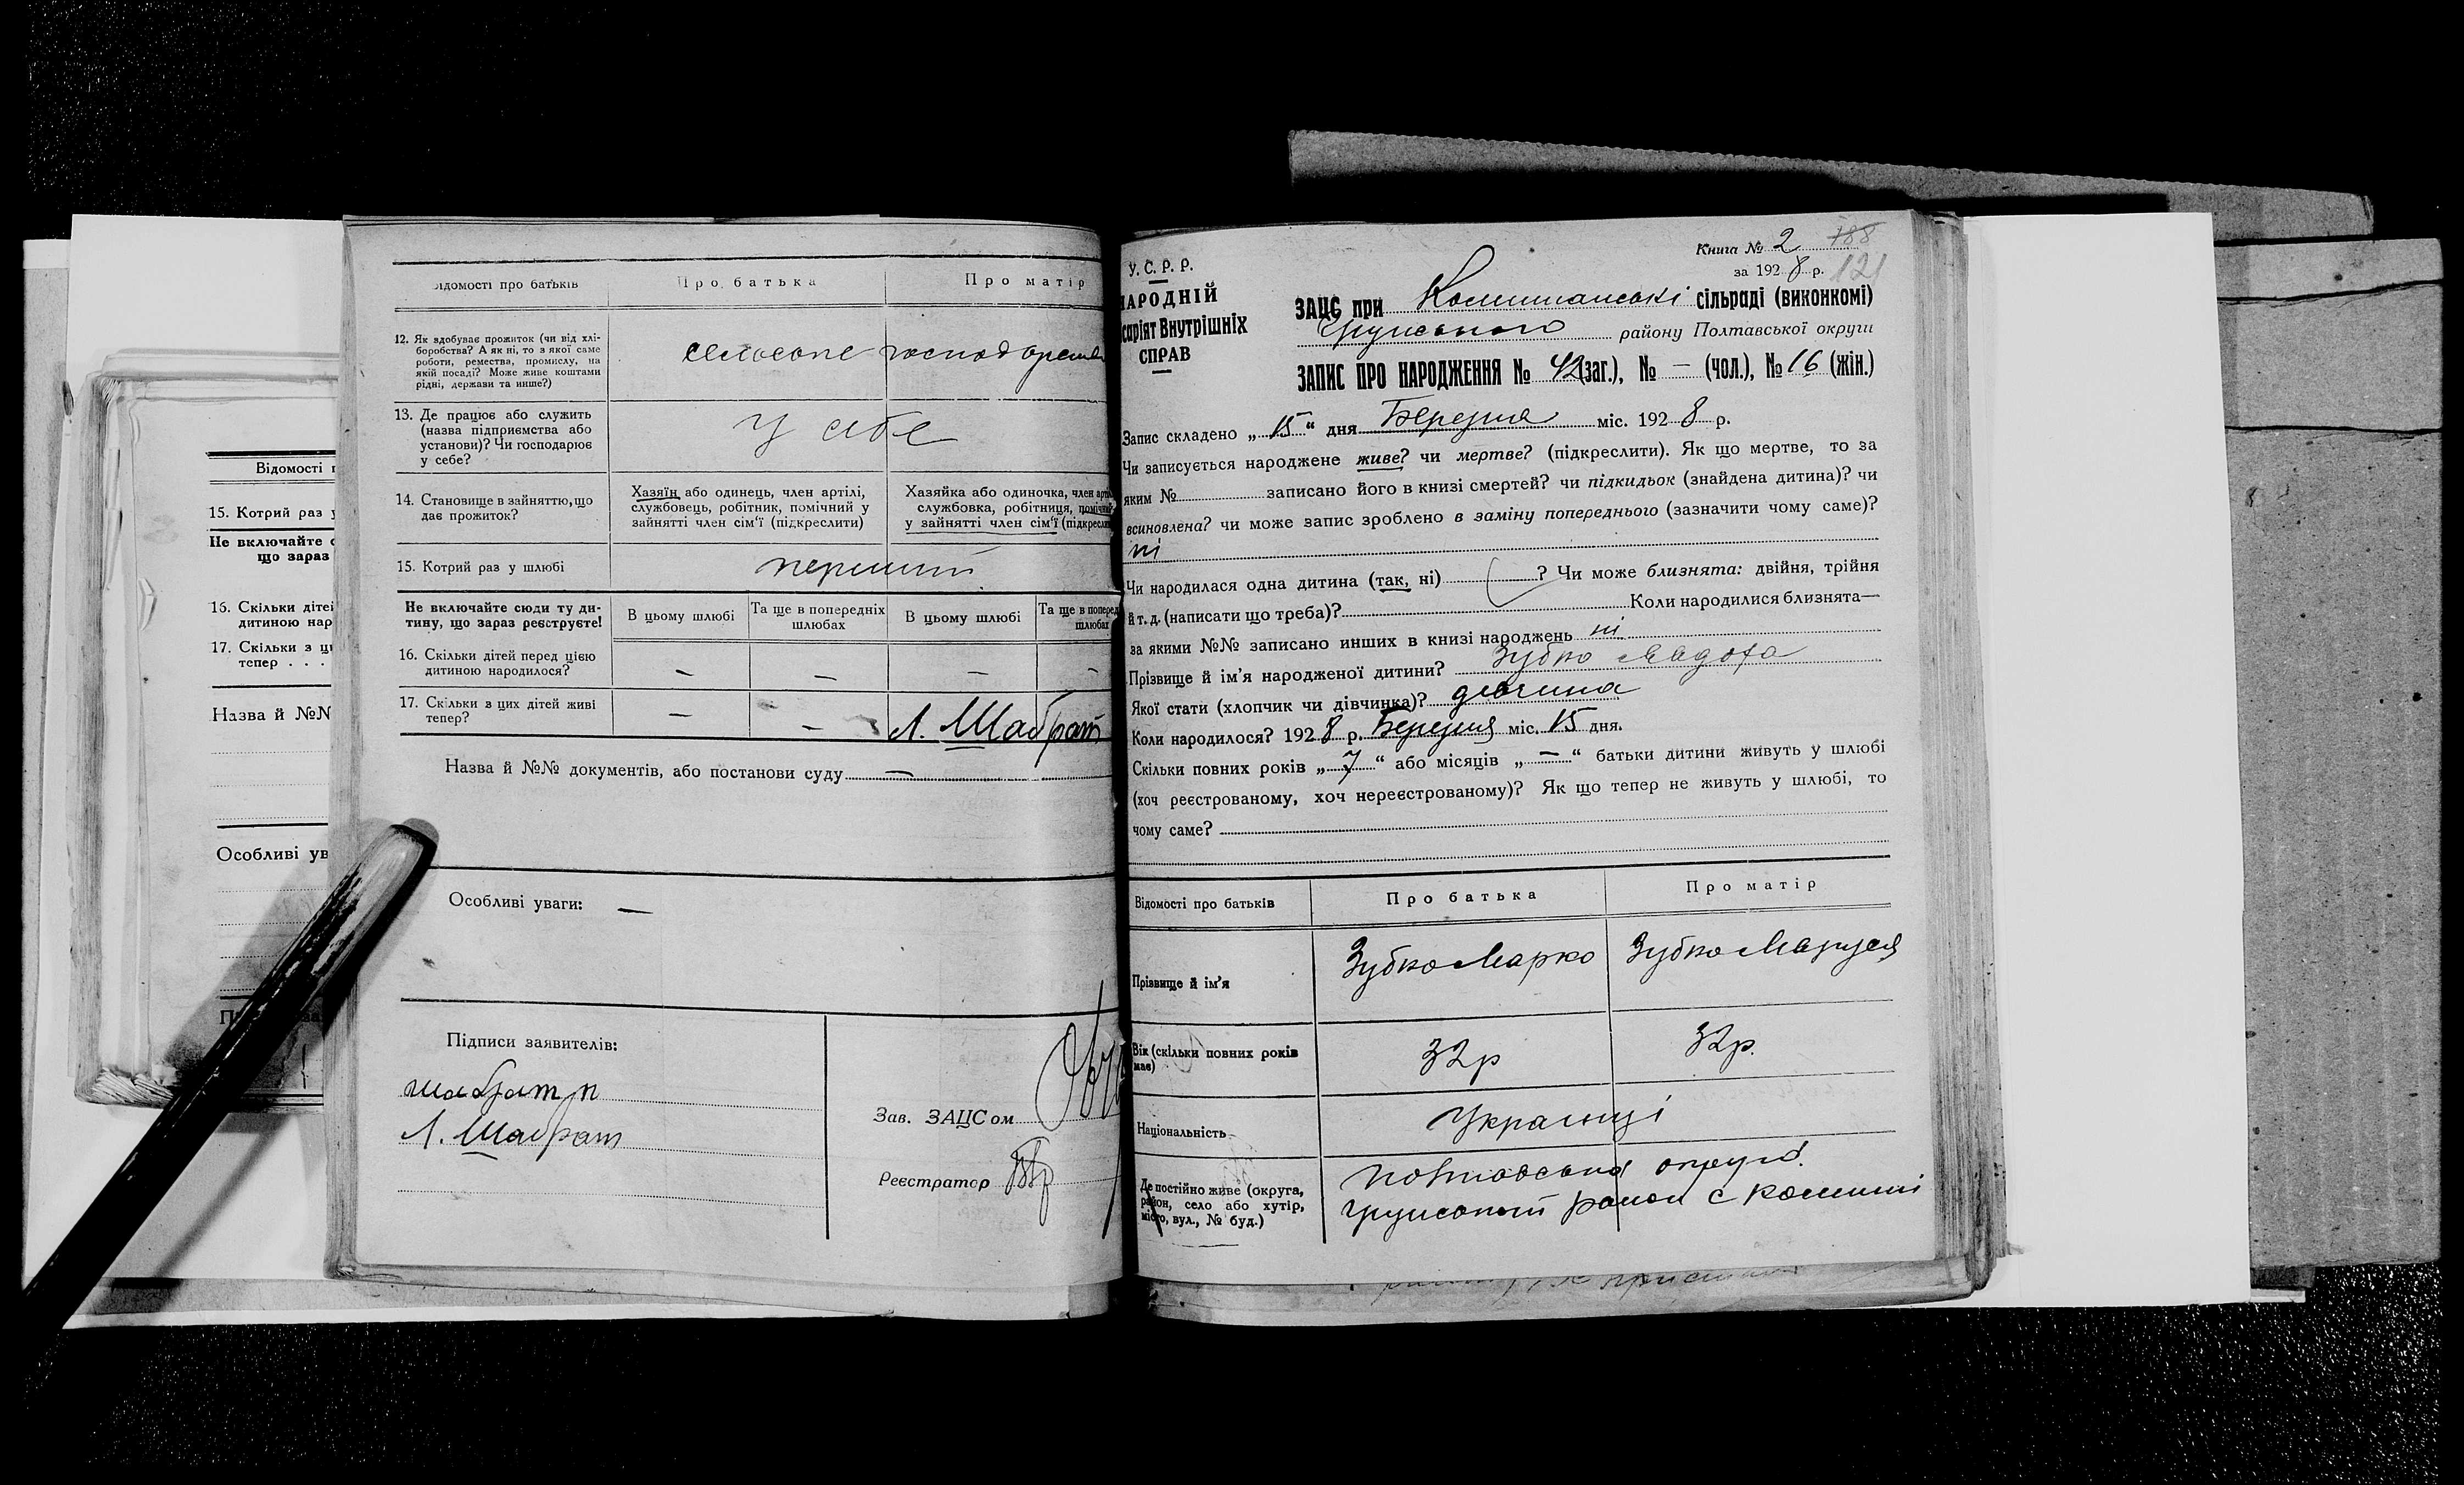 Відомості
15. Котрий раз у
Не включайте
що зараз
16. Скільки дітей
дитиною нар
17. Скільки з ц
тепер . . .
Назва й №№
Особливі ув
ідомості про батьків
Про батька
Про матір
12. Як здобуває прожиток (чи від хлі-
боробства? А як ні, то з якої саме
роботи, ремества, промислу, на
якій посаді? Може живе коштами
рідні, держави та инше?)
сельске господарство
13. Де працює або служить
(назва підприємства або
установи)? Чи господарює
у себе?
У себе
14. Становище в зайняттю, що
дає прожиток?
Хазяїн або одинець, член артілі,
службовець, робітник, помічний у
зайнятті член сім'ї (підкреслити)
Хазяйка або одиночка, член арт
службовка, робітниця, помічни
у зайнятті член сім'ї (підкресли
15. Котрий раз у шлюбі
перший
Не включайте сюди ту ди-
тину, що зараз реєструєте!
В цьому шлюбі
Та ще в попередніх
шлюбах
В цьому шлюбі
Та ще в поперед
шлюбах
16. Скільки дітей перед цією
дитиною народилося?
— — — —
17. Скільки з цих дітей живі
тепер?
— — Л. Шабрат
Назва й №№ документів, або постанови суду —
Особливі уваги: —
Підписи заявителів:
Шабрат п
Л. Шабрат
Зав. ЗАЦСом
Реєстратор
Книга № 2 188
за 1928 р. 121
У. С. Р. Р.
НАРОДНІЙ
саріят Внутрішніх
СПРАВ
ЗАЦС при Комишанські сільраді (виконкомі)
Грунського району Полтавської округи
ЗАПИС ПРО НАРОДЖЕННЯ № 42 (заг.), № — (чол.), № 16 (жін.)
Запис складено „15“ дня Березня міс. 1928 р.
Чи записується народжене живе? чи мертве? (підкреслити). Як що мертве, то за
яким № записано його в книзі смертей? чи підкидьок (знайдена дитина)? чи
всиновлена? чи може запис зроблено в заміну попереднього (зазначити чому саме)?
ні
Чи народилася одна дитина (так, ні) ? Чи може близнята: двійня, трійня
й т. д. (написати що треба)? Коли народилися близнята—
за якими №№ записано инших в книзі народжень ні
Прізвище й ім'я народженої дитини? Зубко
Якої стати (хлопчик чи дівчинка)? дівчина
Коли народилося? 1928 р. Березня міс. 15 дня.
Скільки повних років „7“ або місяців „—“ батьки дитини живуть у шлюбі
(хоч реєстрованому, хоч нереєстрованому)? Як що тепер не живуть у шлюбі, то
чому саме?
Відомості про батьків
Про батька
Про матір
Прізвище й ім'я
Зубко Марко
Зубко Маруся
Вік (скільки повних років
має)
32р
32р.
Національність
Українці
Де постійно живе (округа,
район, село або хутір,
місто, вул., № буд.)
Полтавська округа.
Грунський район с Комиши